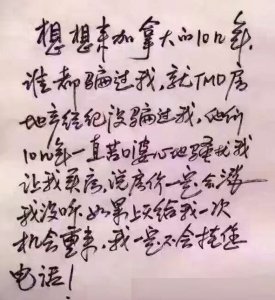 想想来加拿大的10几年，
谁都骗过我，就TMD房
地产经纪没骗过我，他们
10几年一直苦口婆心地骚扰我
让我买房，说房价一定会涨
我没听。如果上天给我一次
机会重来，我一定不会挂僅
电话！